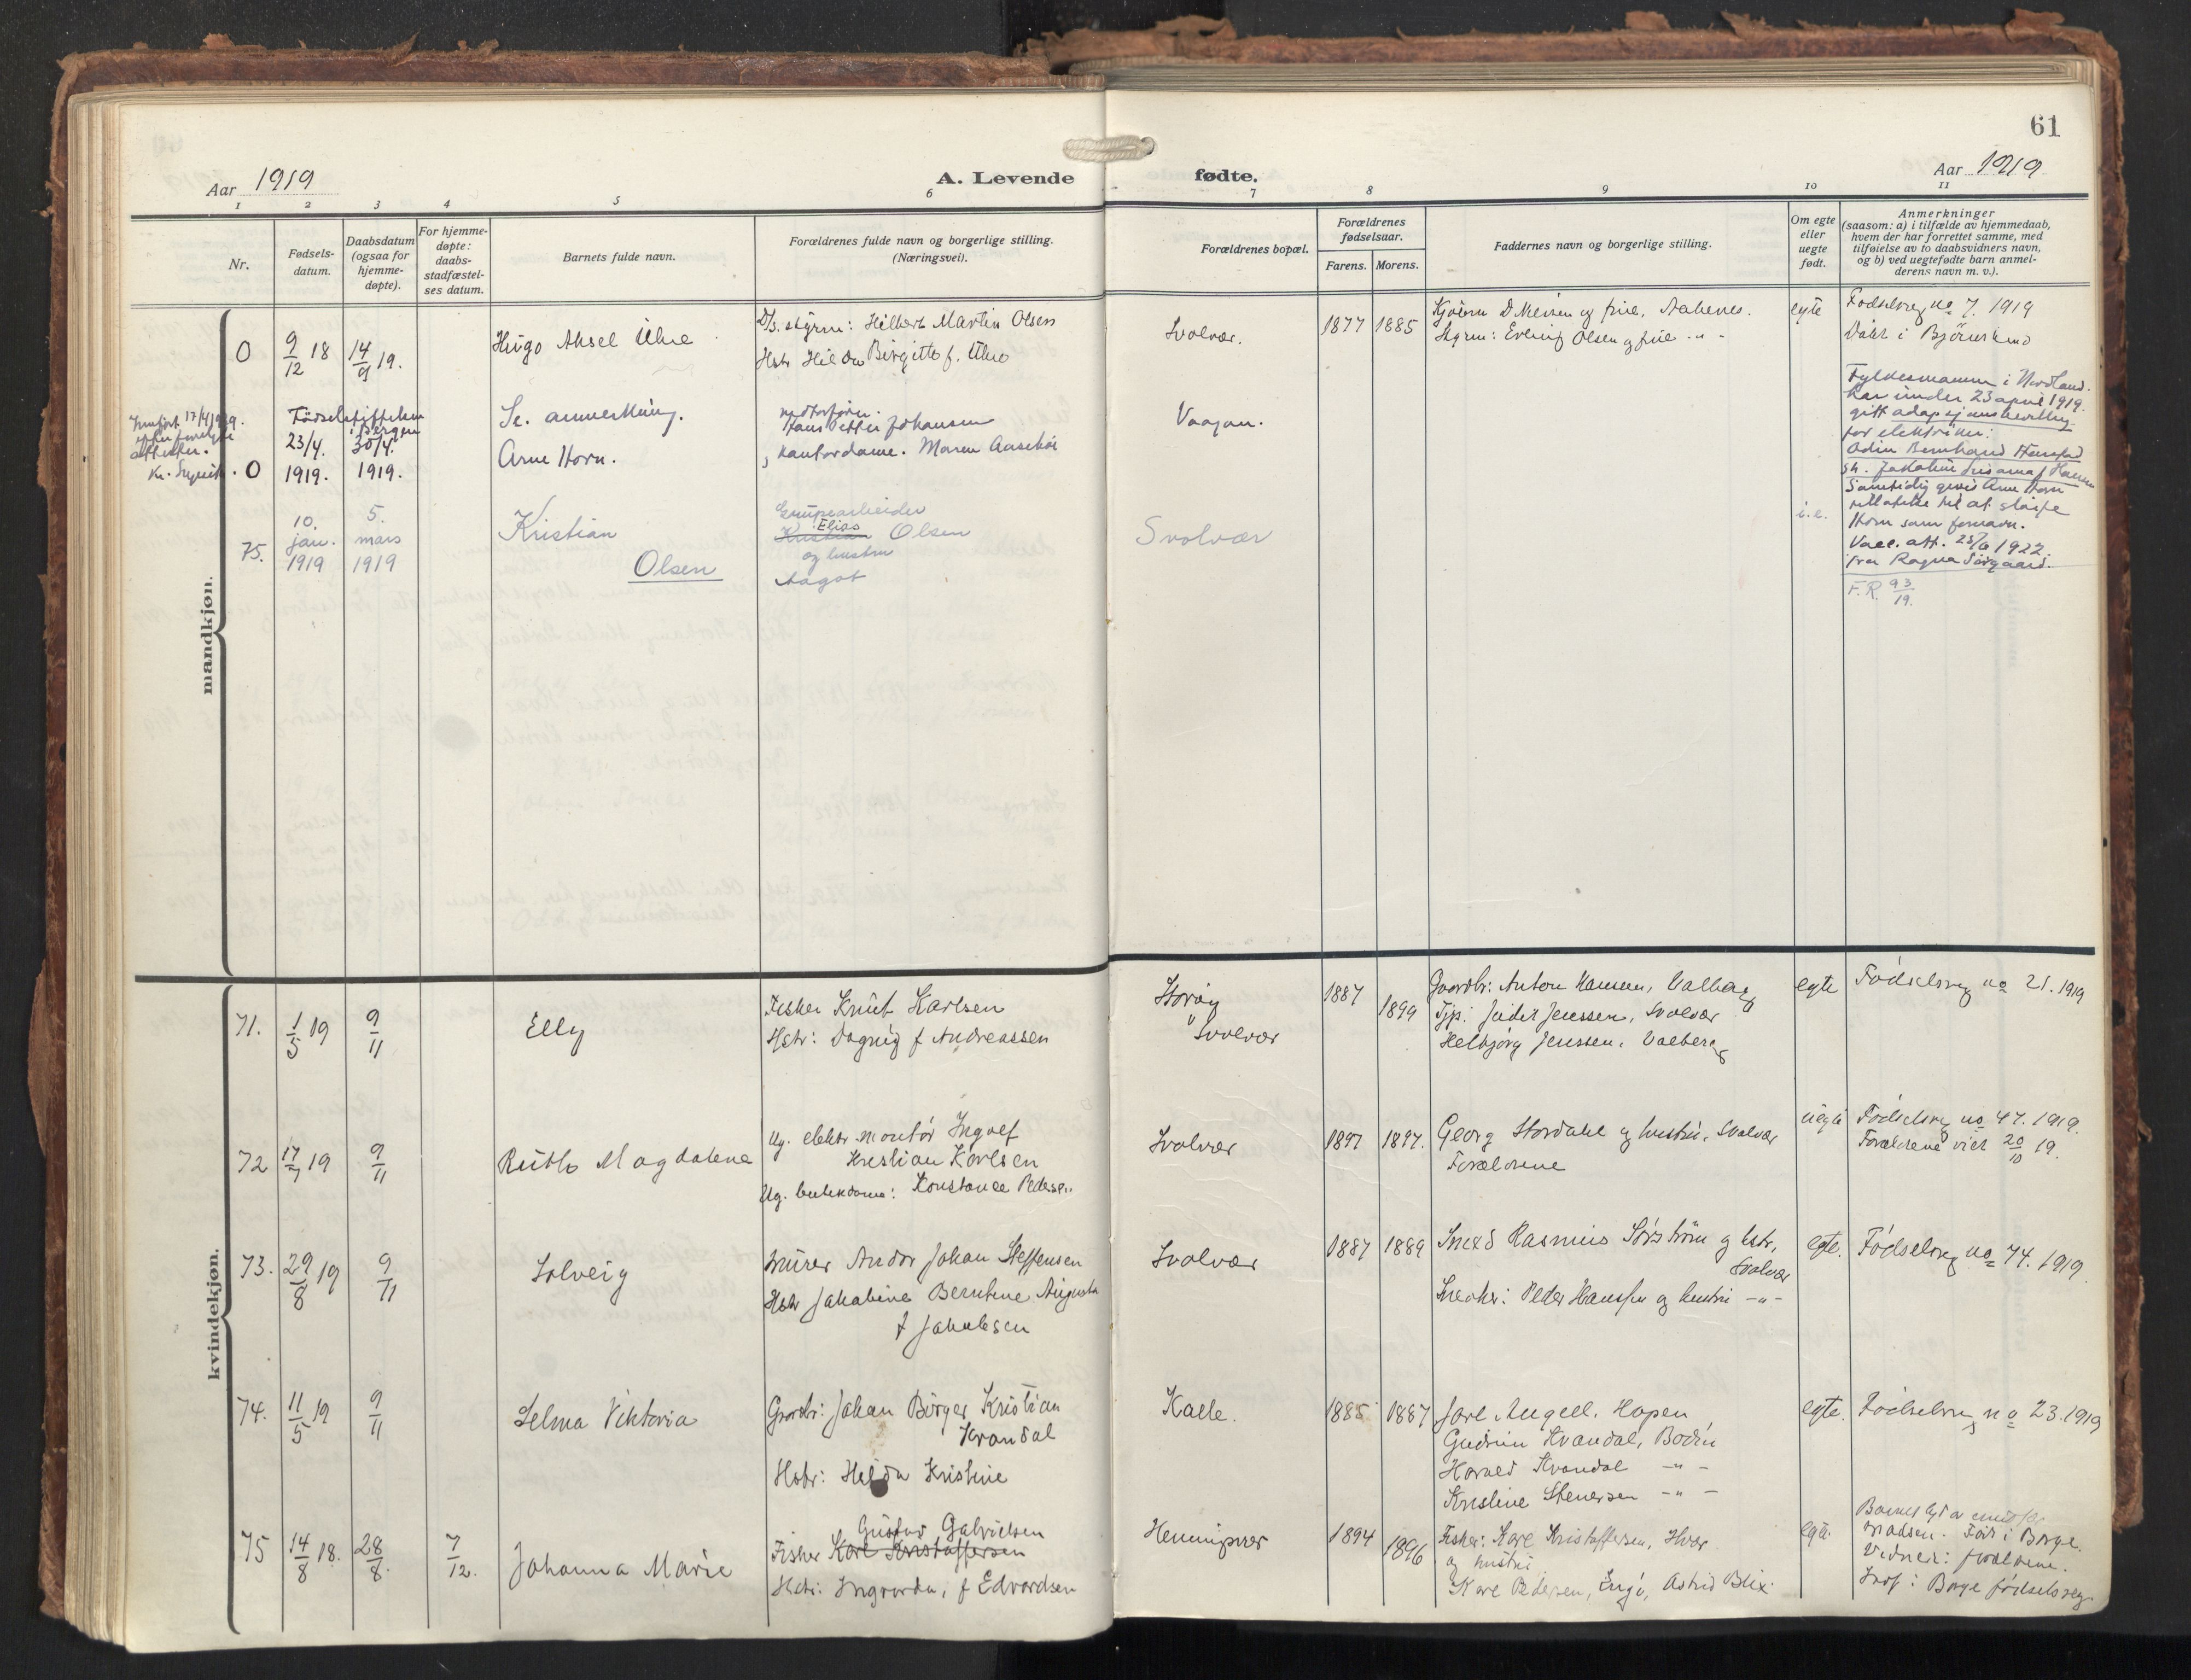 61
Aar 1919
A. Levende fødte.
Aar 1919
1 2 3 4 5 6 7 8 9 10 11
Nr.
Fødsels-
datum.
Daabsdatum
(ogsaa for
hjemme-
døpte).
For hjemme-
døpte:
daabs-
stadfæstel-
ses datum.
Barnets fulde navn.
Forældrenes fulde navn og borgerlige stilling.
(Næringsvei).
Forældrenes bopæl.
Forældrenes
fødselsaar.
Farens. Morens.
Faddernes navn og borgerlige stilling.
Om egte
eller
uegte
født.
Anmerkninger
(saasom: a) i tilfælde av hjemmedaab,
hvem der har forrettet samme, med
tilføielse av to daabsvidners navn,
og b) ved uegtefødte barn anmel-
derens navn m. v.).
mandkjøn.
0
9/12 18
14/9 19.
Hugo Aksel
D/s. styrm: Hilbert Martin Olsen
Hstr Hilda Birgitte f.
Svolvær.
1877 1885
og frue,
Styrm: Erling Olsen og frue - " -
egte
Fødselsreg no 7. 1919
Døbt i
Indført 17/4 1919.
attester.
0
Fødselsstiftelsen
i Bergen
23/4. 30/4.
1919. 1919.
Se anmerkning.
Arne Horn.
Hans Petter Johansen
kontordame. Maren
Vaagan.
Fylkesmannen i Nordland
har under 23 april 1919.
gitt adopsjonsbevilling
for elektriker:
Odin Bernhard
Samtidig gives Arne Horn
rett til at sløife
Horn som fornavn.
Vacc. att. 25/6 1922.
fra Ragna
75.
10. jan. 1919
5. mars 1919
Kristian
Olsen
Grubearbeider
Elias
Kristian Olsen
og hustru
Aagot
Svolvær
i.e.
F.R. 93/19.
kvindekjøn.
71.
1/5 19
9/11
Elly
Fisker Knut Karlsen
Hstr: Dagny f Andreassen
Storøy
Svolvær
1887 1899
Gaardbr: Anton Hansen, Valberg
Tjp: Judit Jenssen, Svolvær
Helbjørg Jenssen, Valberg
egte
Fødselsreg no 21. 1919
72
17/7 19
9/11
Ruth Magdalena
Ug. elektr montør Ingolf
Kristian Karlsen
Ug. butikdame: Konstance Pedersen
Svolvær
1897 1897.
Georg Stordahl og hustru, Svolvær
Forældrene
uegte
Fødselsreg no 47. 1919.
Forældrene viet 20/10 19.
73.
29/8 19
9/11
Solveig
Murer Andor Johan Steffensen
Hstr Jakobine Berntine Augusta
f Jakobsen
Svolvær
1887 1889
Smed Rasmus Sørstrøm og hstr,
Svolvær
Snedker: Peder Hanssen og hustru - " -
egte.
Fødselsreg no 74. 1919.
74.
11/5 19
9/11
Selma Viktoria
Gaardbr: Johan Birger Kristian
Kvandal
Hstr: Hilda Kristine
Kalle.
1885 1887
Jarl Angell, Hopen
Gudrun Kvandal, Bodin
Harald Kvandal - " -
Kristine Stenersen - " -
egte.
Fødselsreg no 23. 1919
75
14/8 18.
28/8.
7/12.
Johanna Marie
Gustav Gabrielsen
Fisker Karl Kristoffersen
Hstr: Ingvarda, f Edvardsen
Henningsvær
1894 1896
Fisker: Karl Kristoffersen, Hvær
og hustru
Kare Pedersen, Engø, Astrid Blix.
egte.
Madsen. Født i Borge.
Vidner: forældrene.
Indf i Borge fødselsreg.